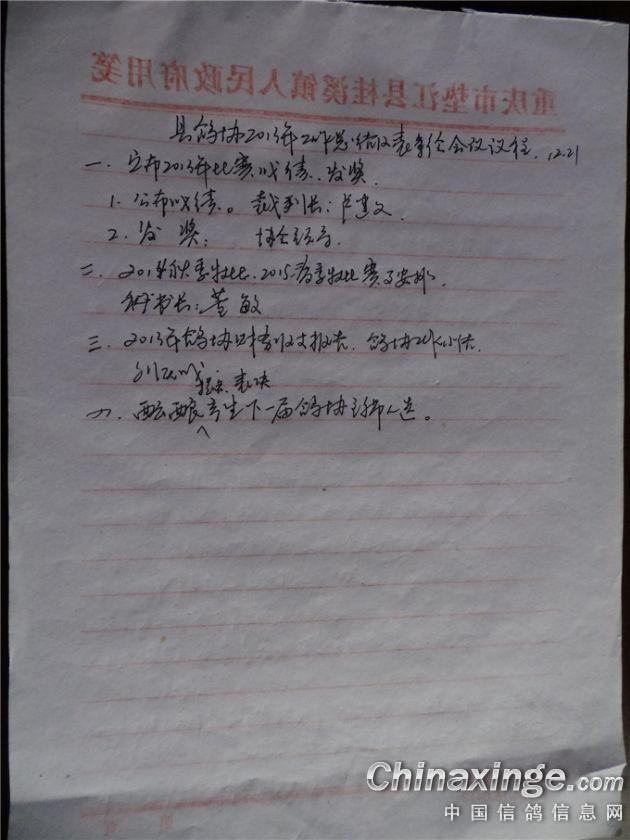 重庆市垫江县桂溪镇人民政府用笺
县鸽协2013年工作总结及表彰会会议议程. 12.21
一. 宣布2013年比赛成绩、发奖.
1. 公布成绩。裁判长: 卢建文.
2. 发奖: 协会领导.
二. 2014秋季特比、2015春季特比赛事安排.
秘书长: 董敏
三. 2013年鸽协财务收支报告. 鸽协工作小结.
提示. 表决
四. 酝酿产生下一届鸽协 人选。
Chinaxinge.com
中国信鸽信息网